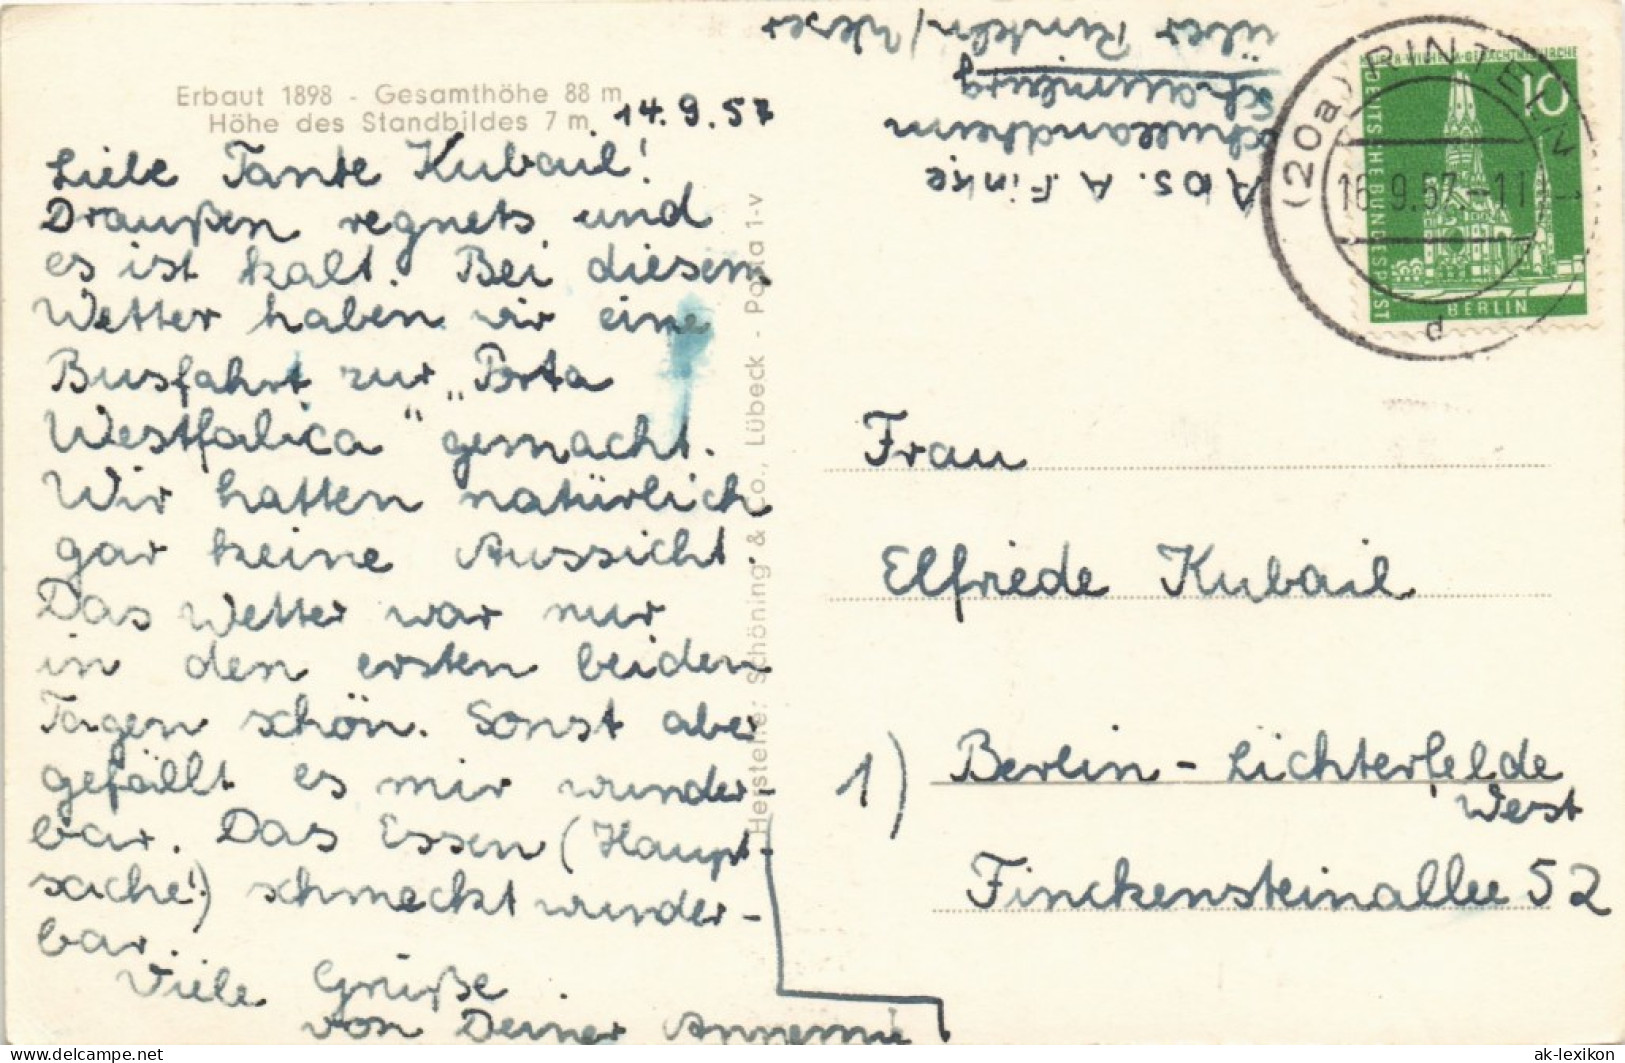 Erbaut 1898 - Gesamthöhe 88 m
Höhe des Standbildes 7 m
14.9.57
Liebe Tante Kubail!
Draußen regnets und
es ist kalt. Bei diesem
Wetter haben wir eine
Busfahrt zur „Porta
Westfalica" gemacht.
Wir hatten natürlich
gar keine Aussicht.
Das Wetter war nur
in den ersten beiden
Tagen schön. Sonst aber
gefällt es mir wunder-
bar. Das Essen (Haupt-
sache!) schmeckt wunder-
bar.
Viele Grüße
von Deiner Annemie
Hersteller: Schöning & Co., Lübeck - Porta 1-v
Abs. A. Finke
Schullandheim
Schaumburg
über Rinteln/Weser
(20a) RINTELN
16.9.57.-11
d
10
DEUTSCHE BUNDESPOST
BERLIN
Frau
Elfriede Kubail
1) Berlin - Lichterfelde
West
Finckensteinallee 52
delcampe.net
ak-lexikon